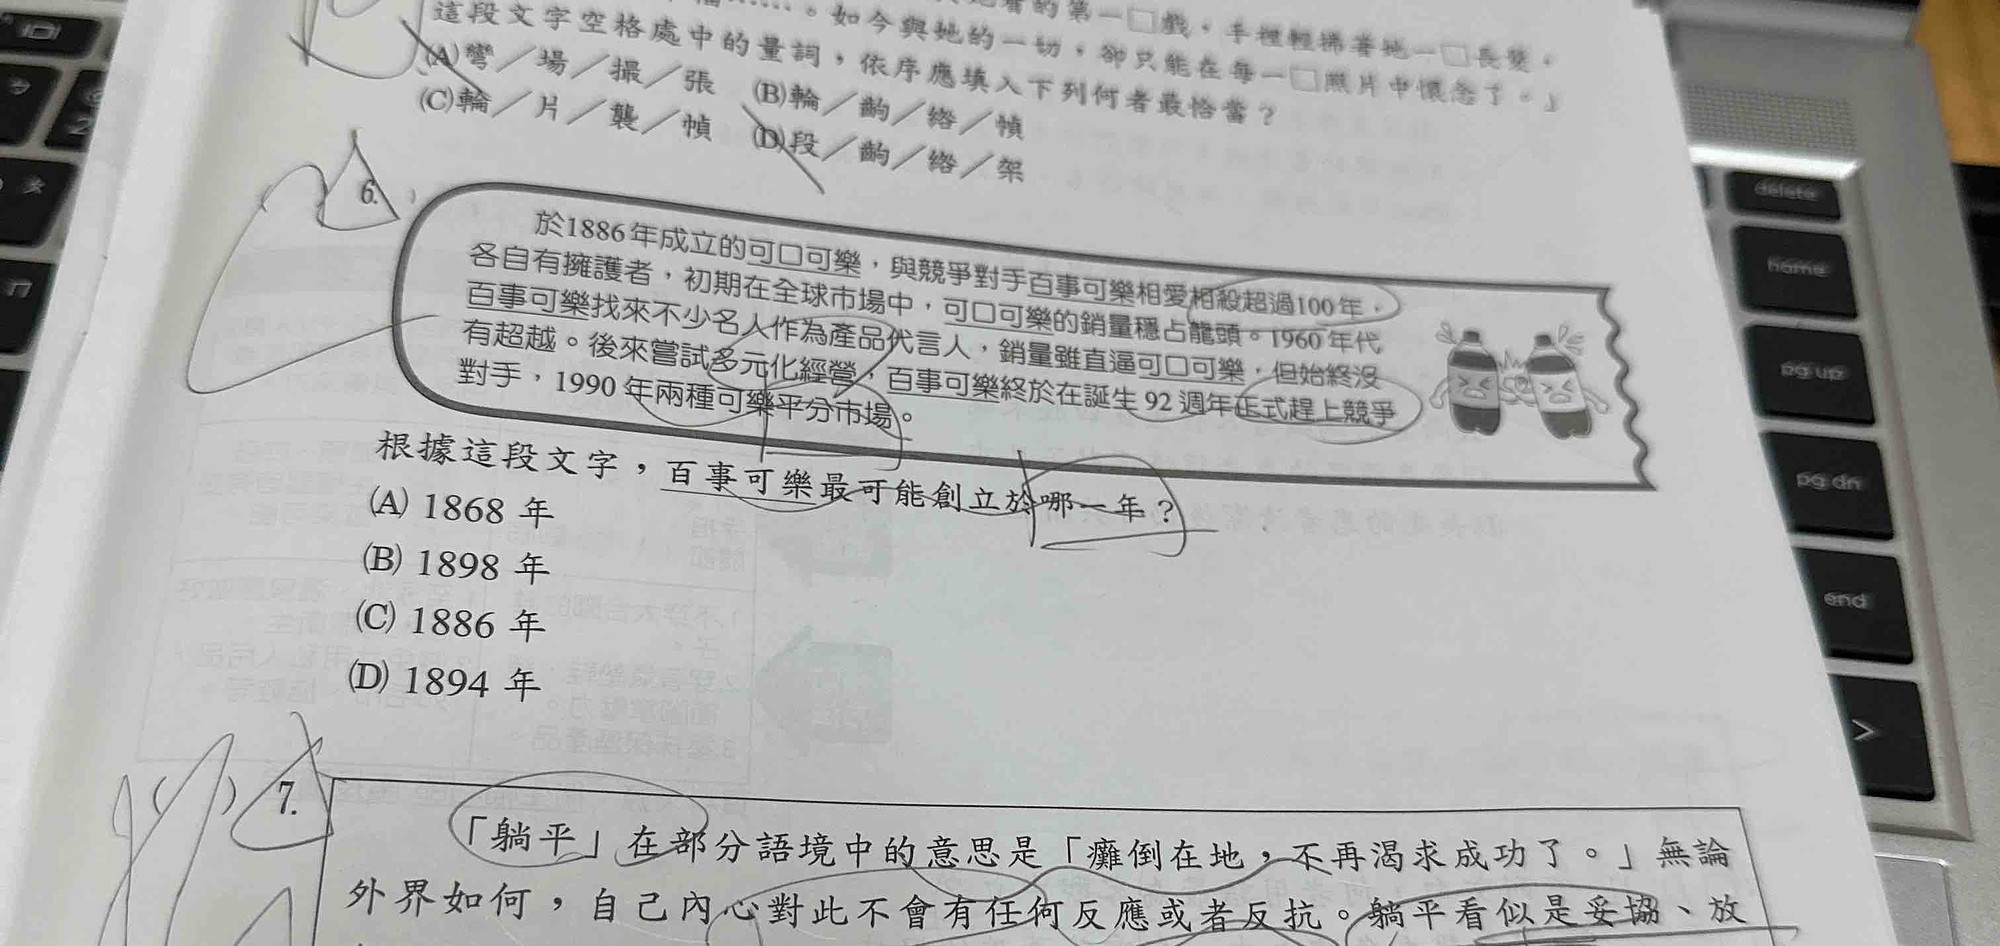 的第一□戲,手裡輕拂著她一□長髮,
。如今與她的一切,卻只能在每一□照片中懷念了。」
這段文字空格處中的量詞,依序應填入下列何者最恰當?
(A)彎/場/撮/張 (B)輪/齣/綹/幀
(C)輪/片/襲/幀 (D)段/齣/綹/架
6.
於1886年成立的可口可樂,與競爭對手百事可樂相愛相殺超過100年,
各自有擁護者,初期在全球市場中,可口可樂的銷量穩占龍頭。1960年代
百事可樂找來不少名人作為產品代言人,銷量雖直逼可口可樂,但始終沒
有超越。後來嘗試多元化經營,百事可樂終於在誕生92週年正式趕上競爭
對手,1990年兩種可樂平分市場。
根據這段文字,百事可樂最可能創立於哪一年?
(A) 1868 年
(B) 1898 年
(C) 1886 年
(D) 1894 年
( ) 7.
「躺平」在部分語境中的意思是「癱倒在地,不再渴求成功了。」無論
外界如何,自己內心對此不會有任何反應或者反抗。躺平看似是妥協、放
delete
home
pg up
pg dn
end